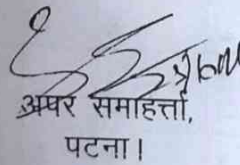 अपर समाहर्त्ता,
पटना।